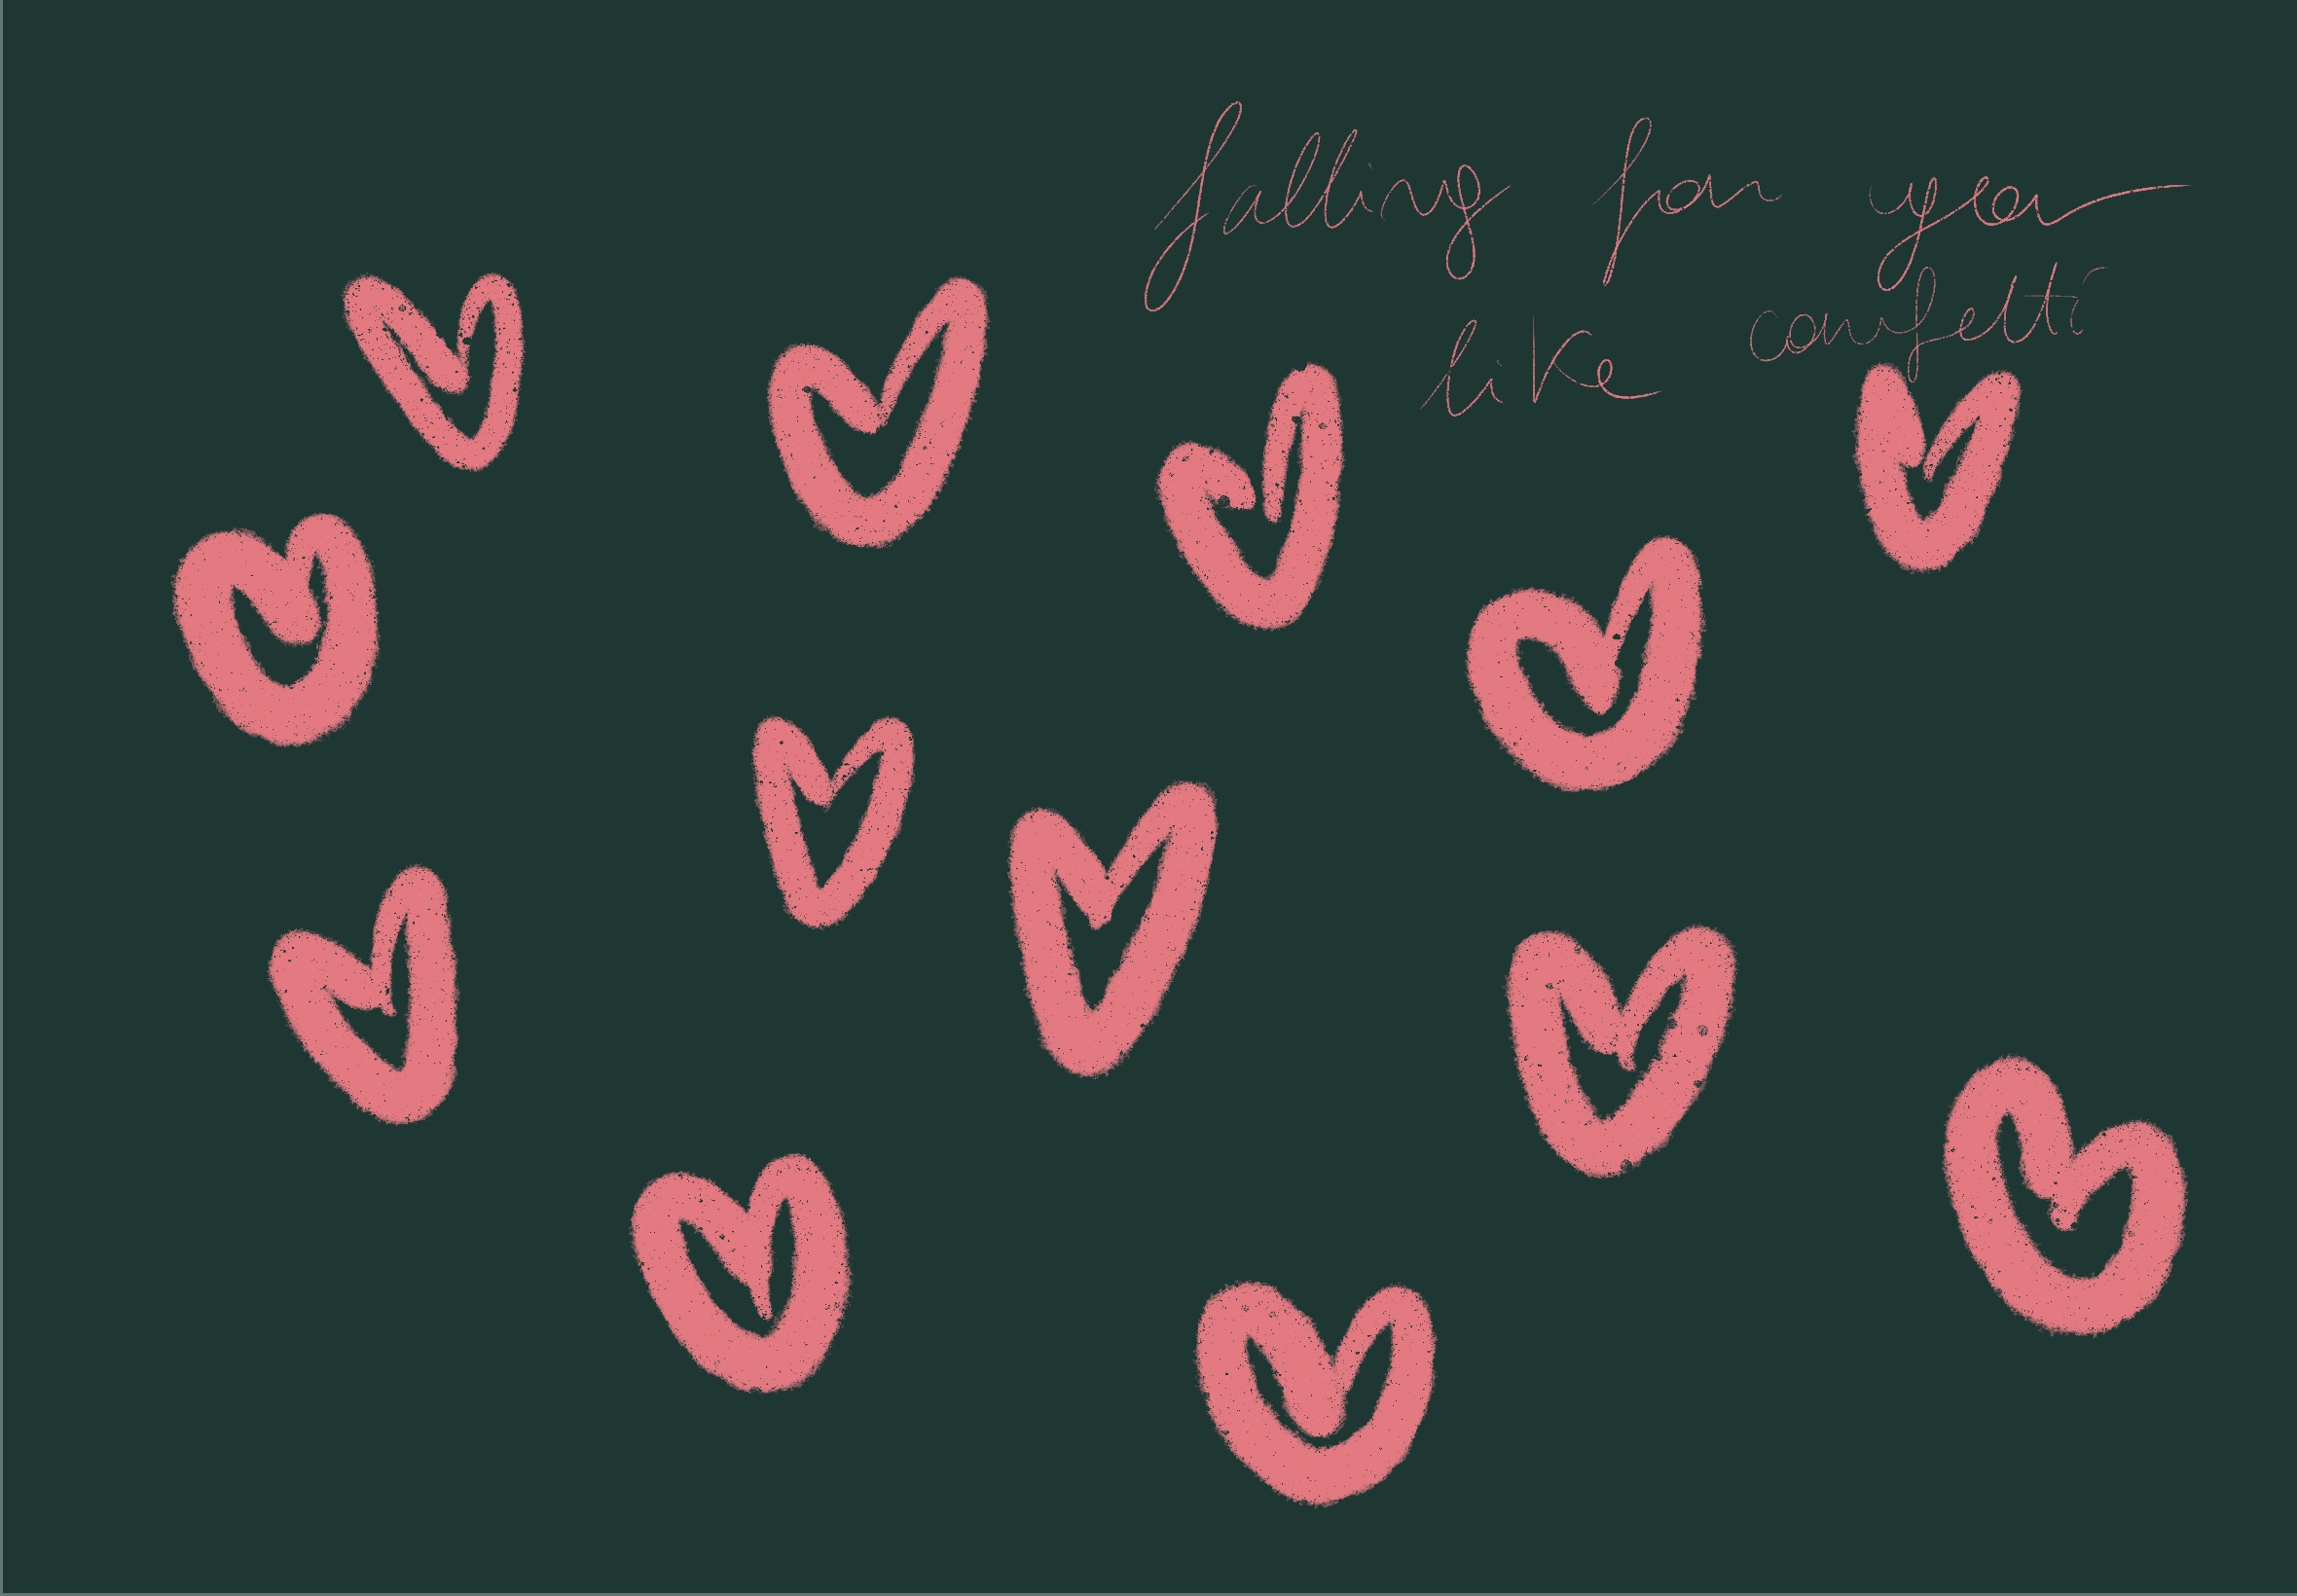 falling for you
like confetti